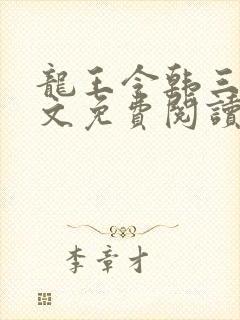 龍王令韩三
文免費閱讀
李章才